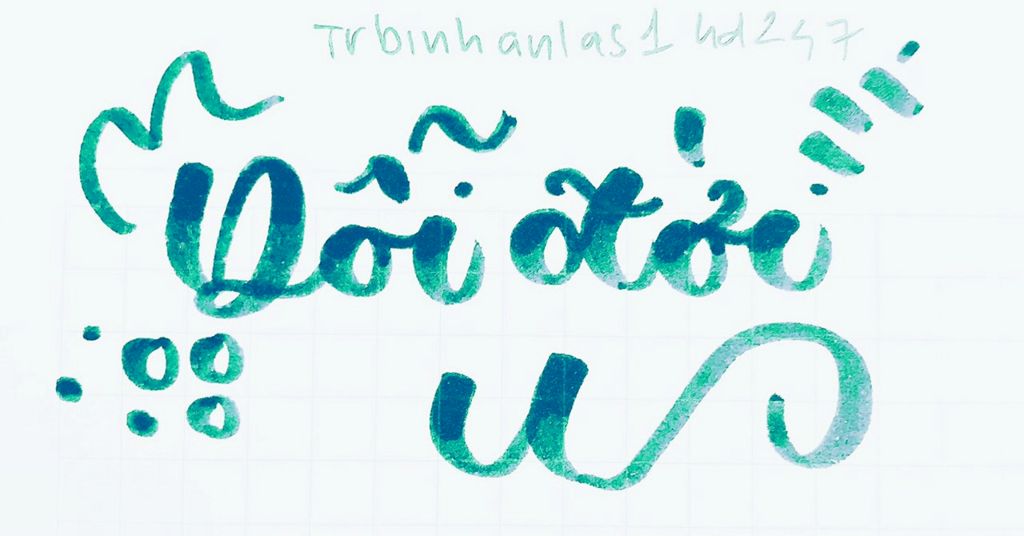 Trbinhanlas1 hd247
Dỗi đới
u